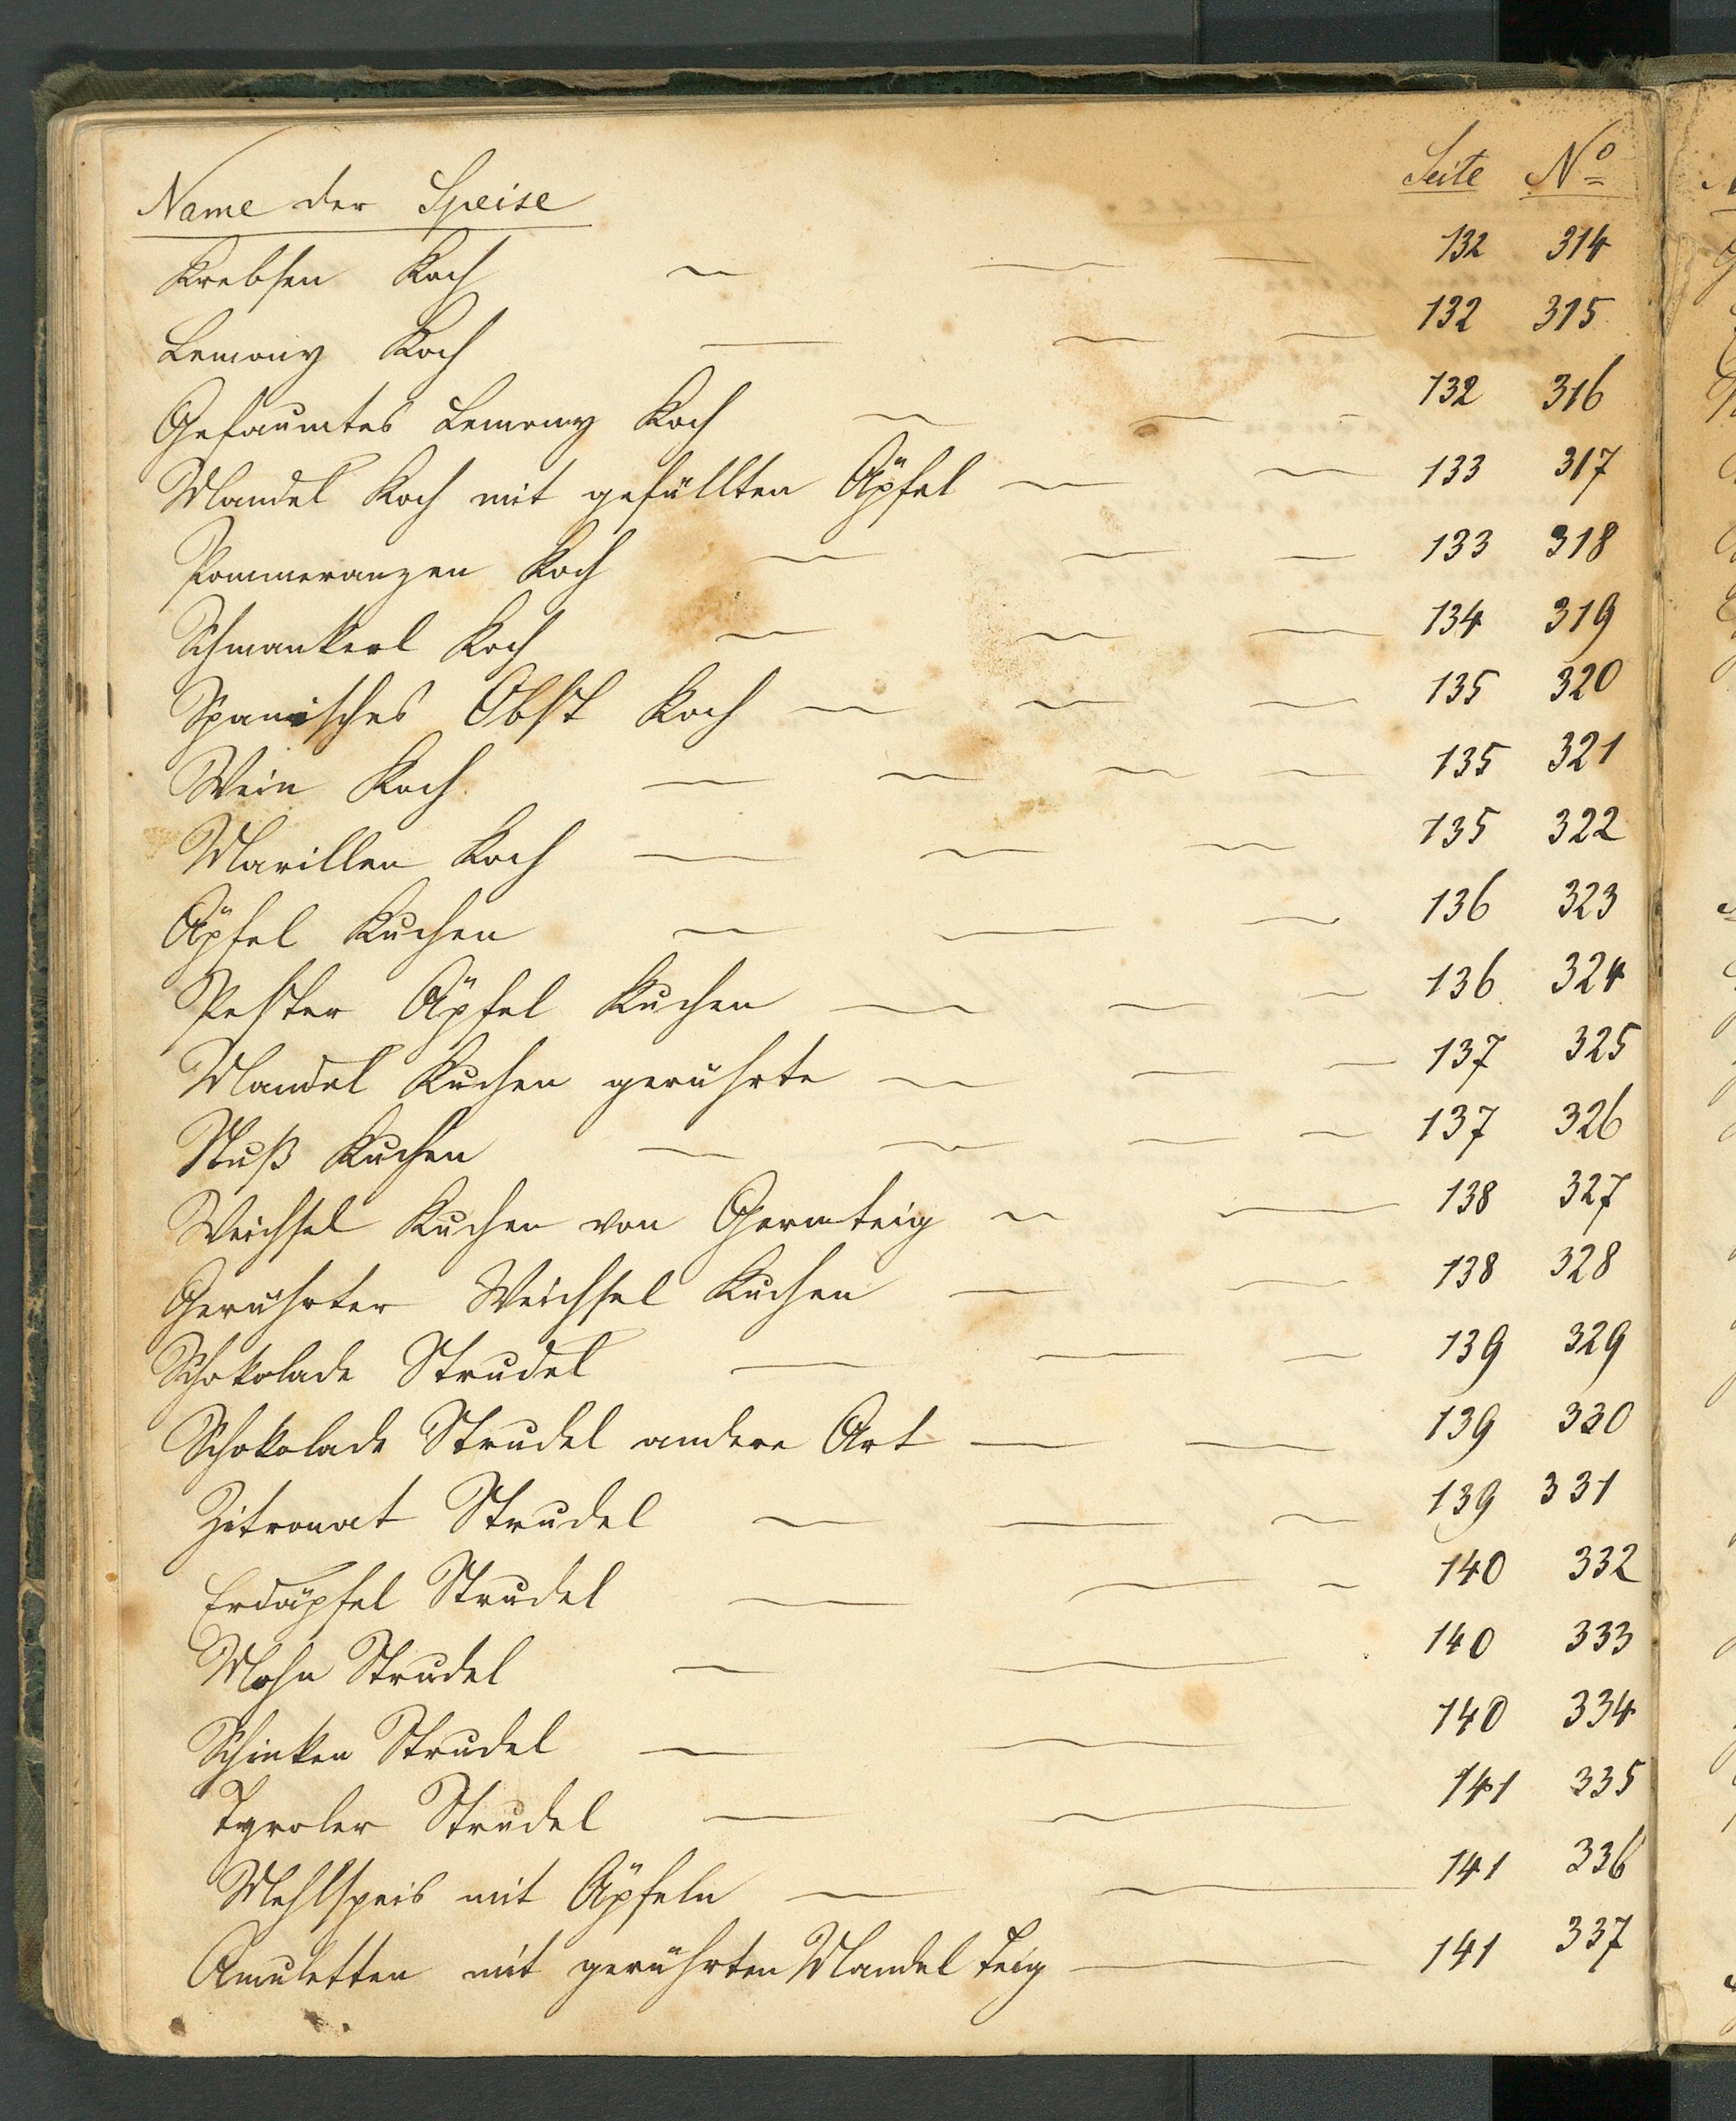 Name der Speise Seite No
Krebsen Koch 132 314
Lemony Koch 132 315
Gefaumtes Lemony Koch 132 316
Mandel Koch mit gefüllten Äpfel 133 317
Pommeranzen Koch 133 318
Schmankerl Koch 134 319
Spanisches Obst Koch 135 320
Wein Koch 135 321
Marillen Koch 135 322
Äpfel Kuchen 136 323
Pester Äpfel Kuchen 136 324
Mandel Kuchen gerührte 137 325
Nuß Kuchen 137 326
Weichsel Kuchen von Germteig 138 327
Gerührter Weichsel Kuchen 138 328
Schokolade Strudel 139 329
Schokolade Strudel andere Art 139 330
Zitronat Strudel 139 331
Erdäpfel Strudel 140 332
Mohn Strudel 140 333
Schinken Strudel 140 334
Tyroler Strudel 141 335
Mehlspeis mit Äpfeln 141 336
Amuletten mit gerührten Mandel Teig 141 337